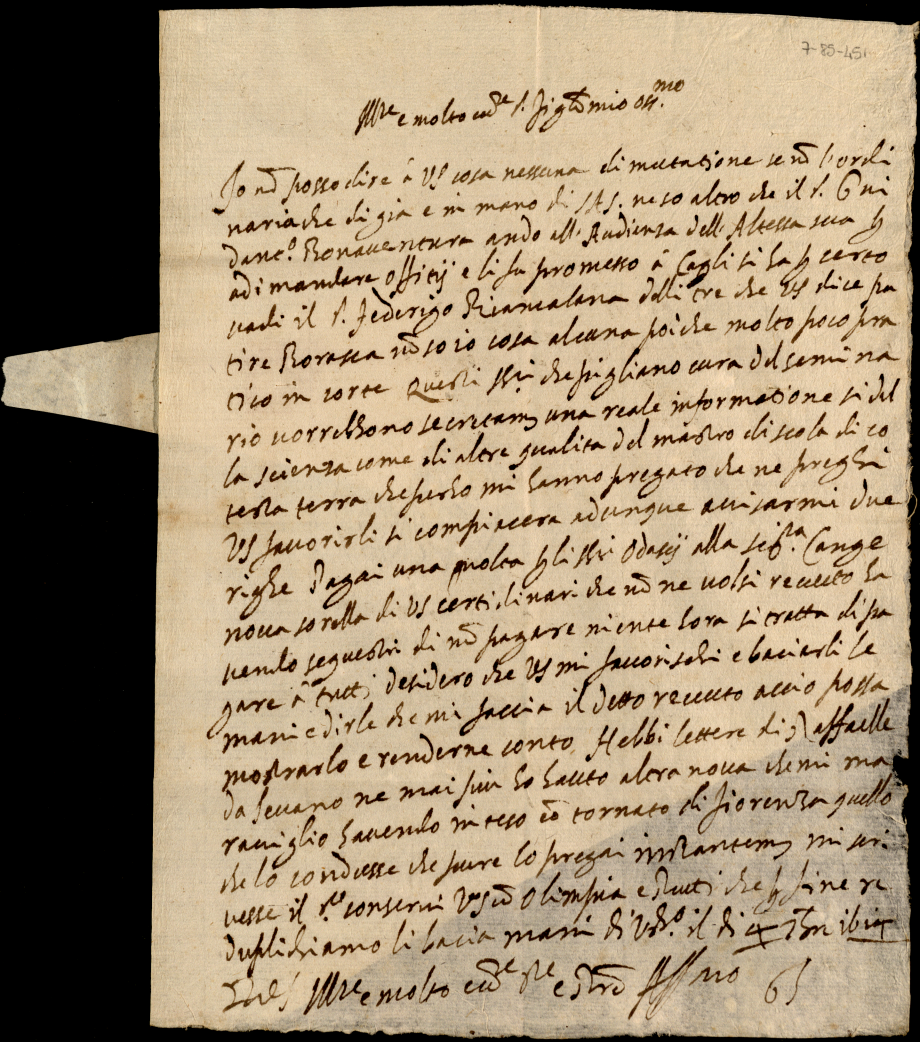 7-85-451
Ill.re e molto ecc.te S. mio oss.mo
Io nõ posso dire à VS cosa nessuna di mutatione se nõ l'ordi
naria che di gia e in mano di SAS. ne so altro che il S. Gui
danc.o Bonaventura ando all' Audienza dell' Altezza sua p
adimandare offitij e li fu promesso à Cagli si ha p certo
vadi il S. Federigo delli tre che VS dice pa
tire Borasca nõ so io cosa alcuna poi che molto poco pra
tico in corte Questi SSri che pigliano cura del semina
rio vorrebbono secretam una reale informatione si del
la scienza come di altre qualita del mastro di scola di co
testa terra che perho mi hanno pregato che ne preghi
VS favorirli si compiacera adunque avisarmi due
righe Pagai una volta p li SSri Odasij alla sig.ra Cange
nova sorella di VS certi dinari che nõ ne volsi receuto ha
vendo sequestri di nõ pagare niente hora si tratta di pa
gare à tutti desidero che VS mi favorischi e baciarli le
mani e dirle che mi faccia il detto receuto accio possa
mostrarlo e renderne conto, Hebbi lettere di Raffaelle
da ne mai piu ho hauto altra nova che mi ma
raviglio havendo inteso eo tornato di Fiorenza quello
che lo condusse che pure lo pregai instantem mi scri
vesse il S.re conservi VS cõ Olimpia e Tutti che p fine re
duplichiamo li bacia mani di il di
Ill.re e molto ecc.te e